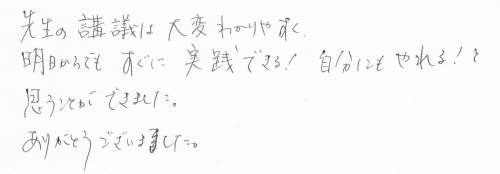 先生の講義は大変わかりやすく、
明日からでもすぐに実践できる！自分にもやれる！と
思うことができました。
ありがとうございました。